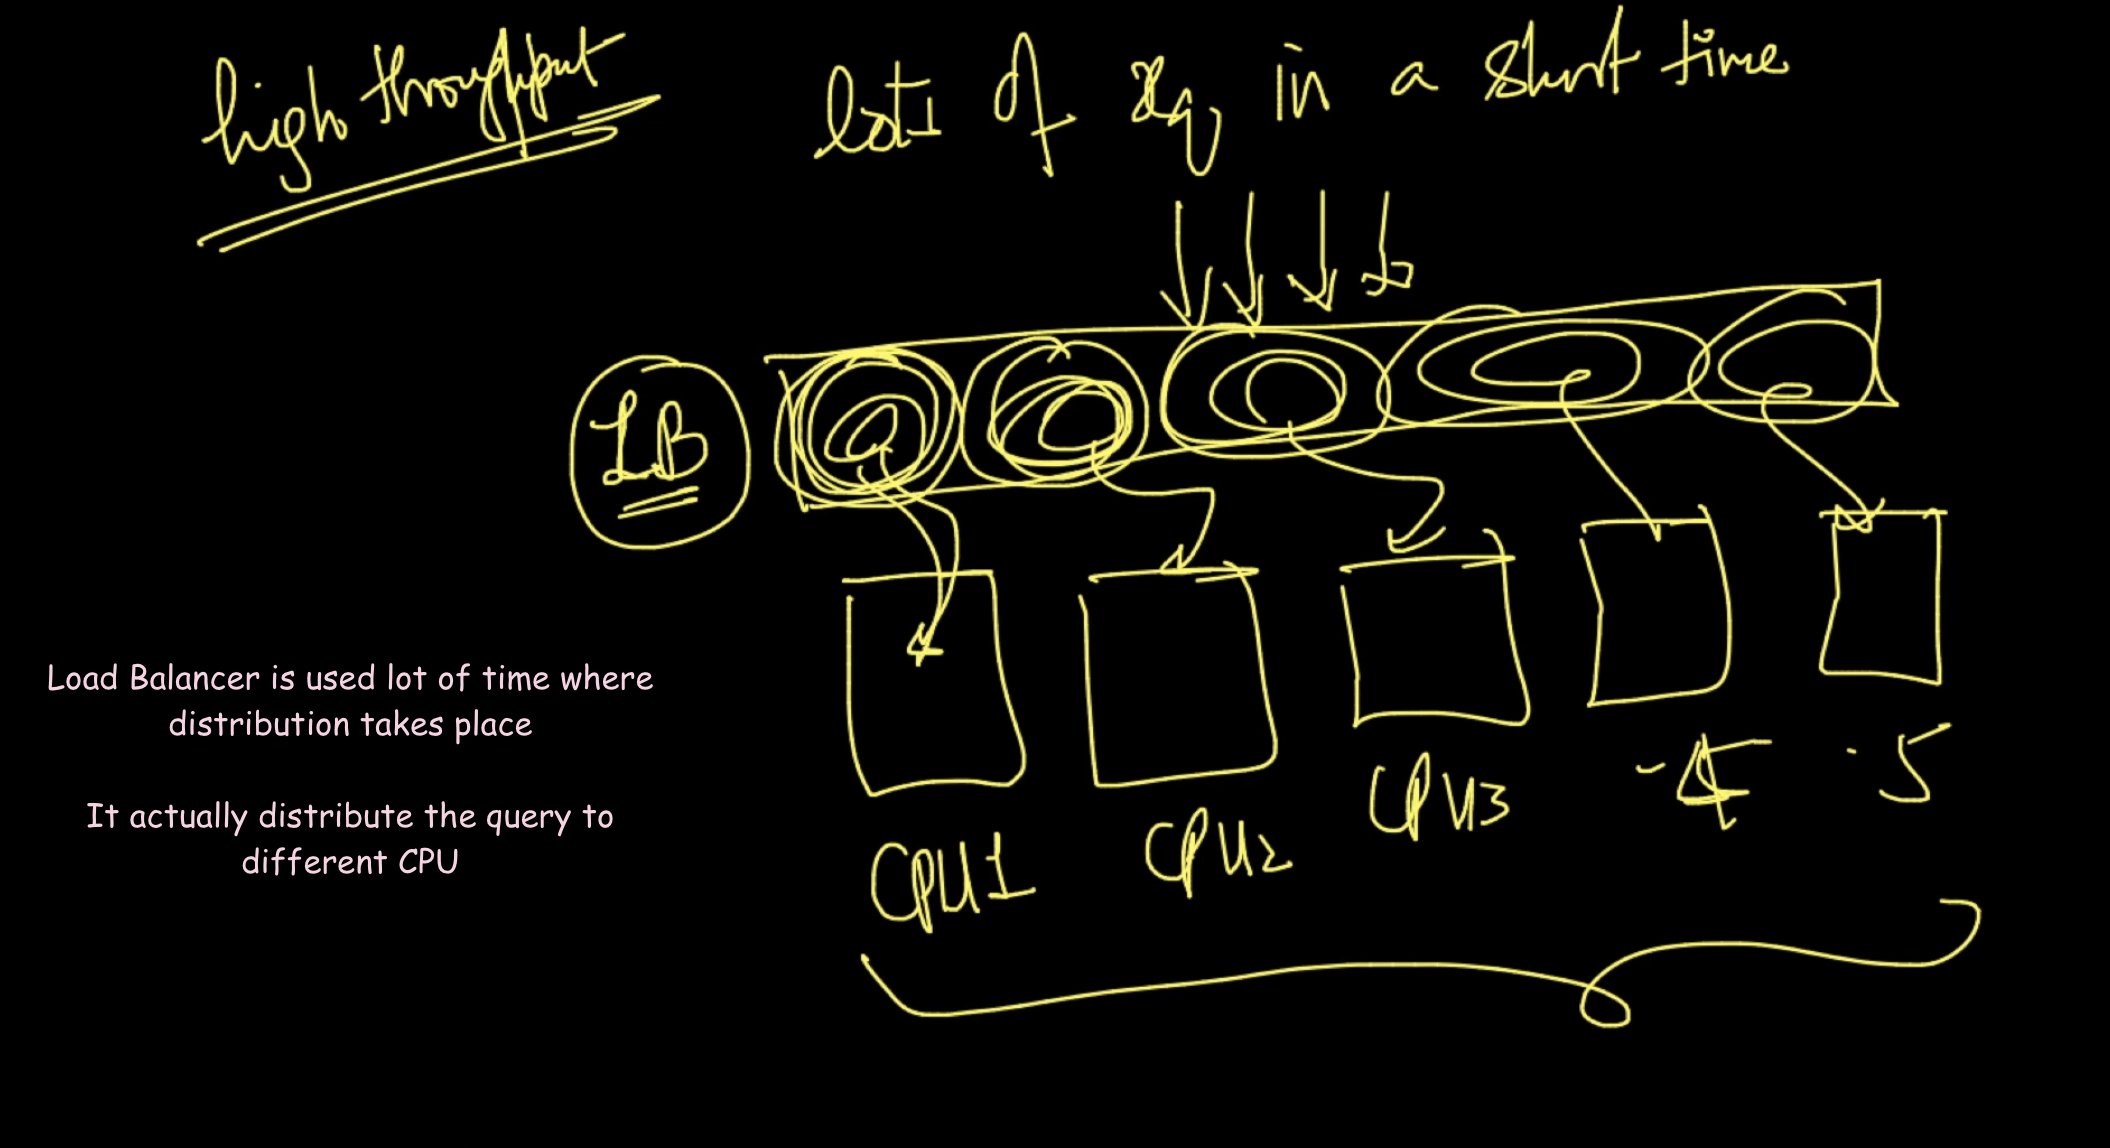 high throughput
lots of Rq in a short time
LB
Load Balancer is used lot of time where
distribution takes place
It actually distribute the query to
different CPU
CPU1
CPU2
CPU3
-4
-5